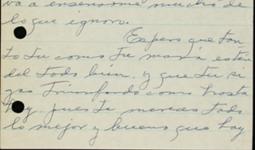 va a enseñarme mucho de
lo que ignoro.
Espero que tan
to tu como tu mamá esten
del todo bien, y que tu si
gas triunfando como hasta
hoy, pues te mereces todo
lo mejor y bueno que hay